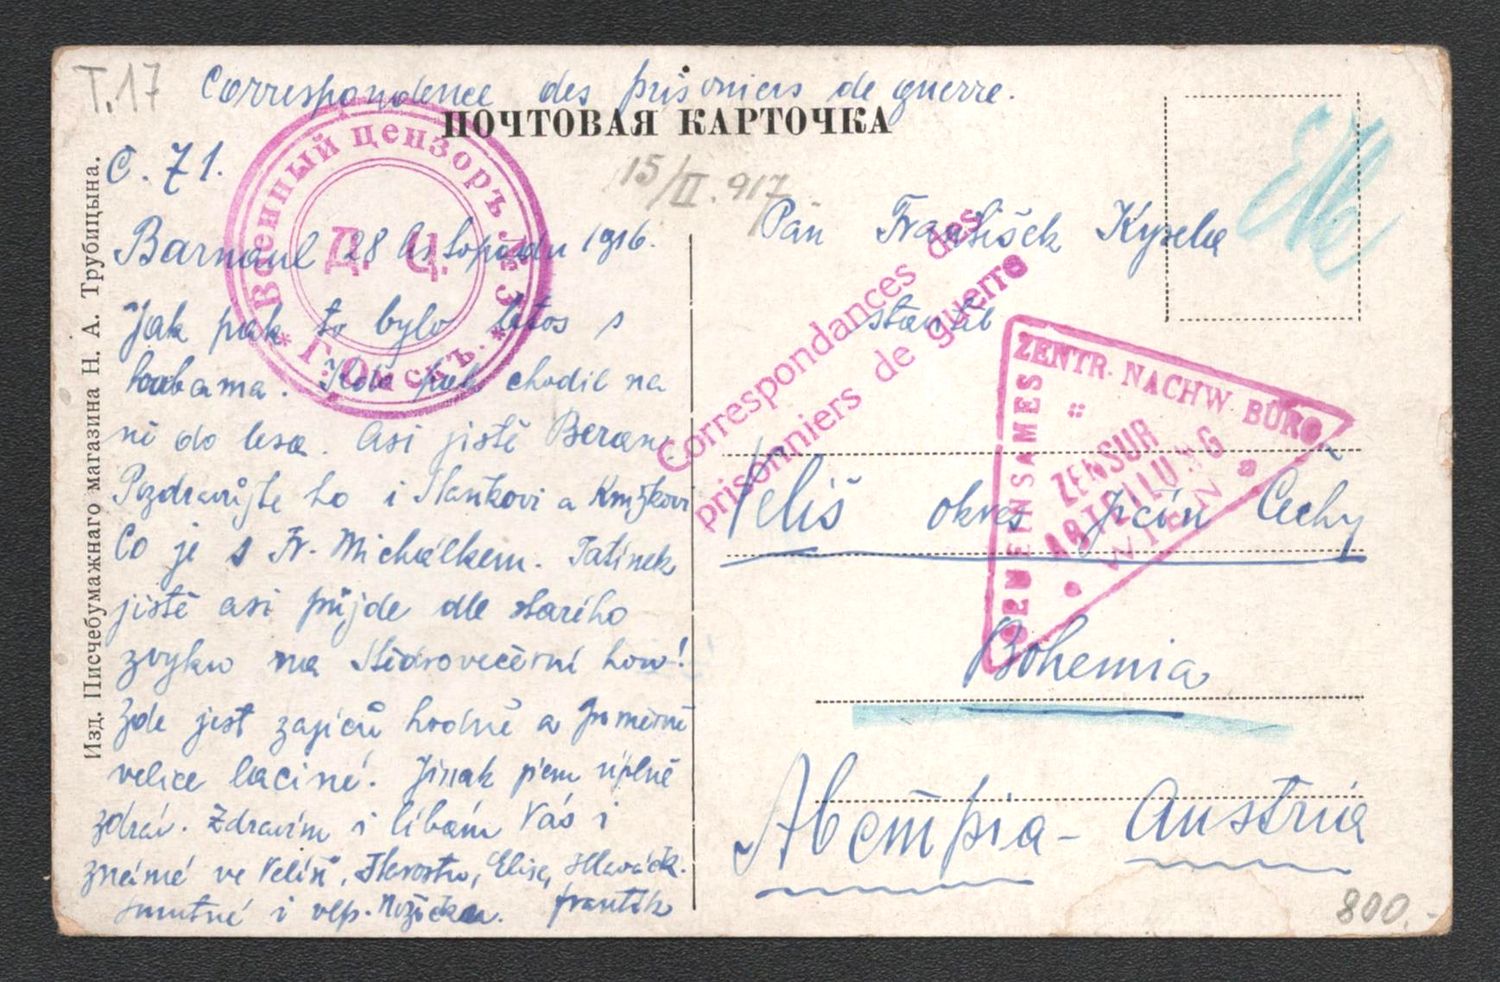 T.17
Correspondence des prisoniers de guerre.
ПОЧТОВАЯ КАРТОЧКА
Č. 71.
15/II. 917
Barnaul 28 listopadu 1916.
Jak pak to bylo letos s
houbama. Kdo pak chodil na
ně do lesa. Asi jistě Beran.
Pozdravujte ho i Frankovi a
Co je s Fr. Michálkem. Tatínek
jistě asi půjde dle starího
zvyku na štědrovečerní hon!
Zde jest zajíců hodně a poměrně
velice laciné. Jinak jsem úplně
zdráv. Zdravím i líbám Vás i
známé ve Veliši, Starostu, Hlaváčk.
i vlp. Nožičku. Frantík
Изд. Писчебумажнаго магазина Н. А. Трубицына.
Военный цензоръ № 3
Д. Ц.
* Г. Омскъ. *
Correspondances des
prisonniers de guerre
Pan František Kysela
Veliš okres Jičín Čechy
Bohemia
Австрія – Austria
ZENTR. NACHW. BURO
GEMEINSAMES
ZENSUR
ABTEILUNG
WIEN
800.-